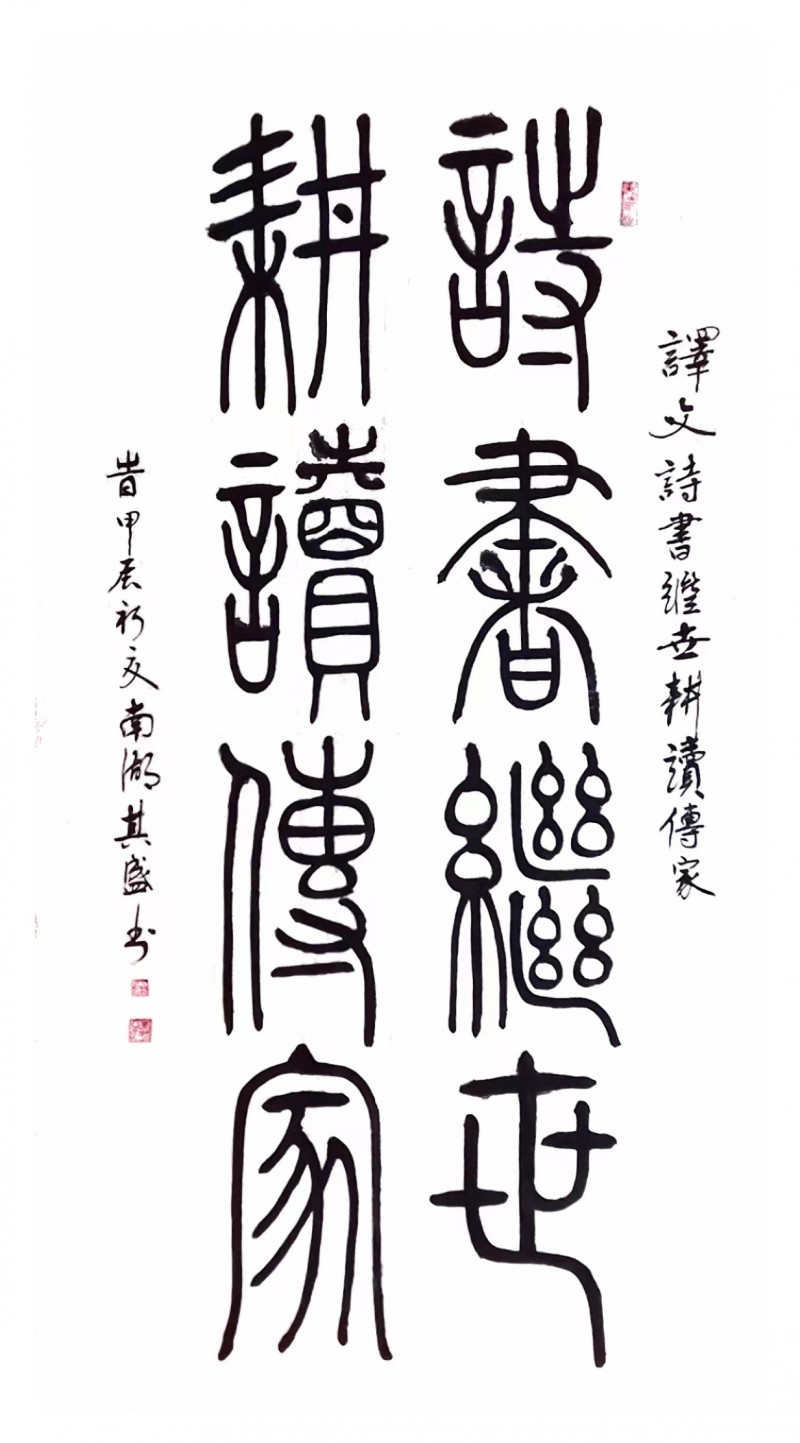 譯文詩書繼世耕讀傳家
詩書繼世
耕讀傳家
旹甲辰初夏南湖其盛书